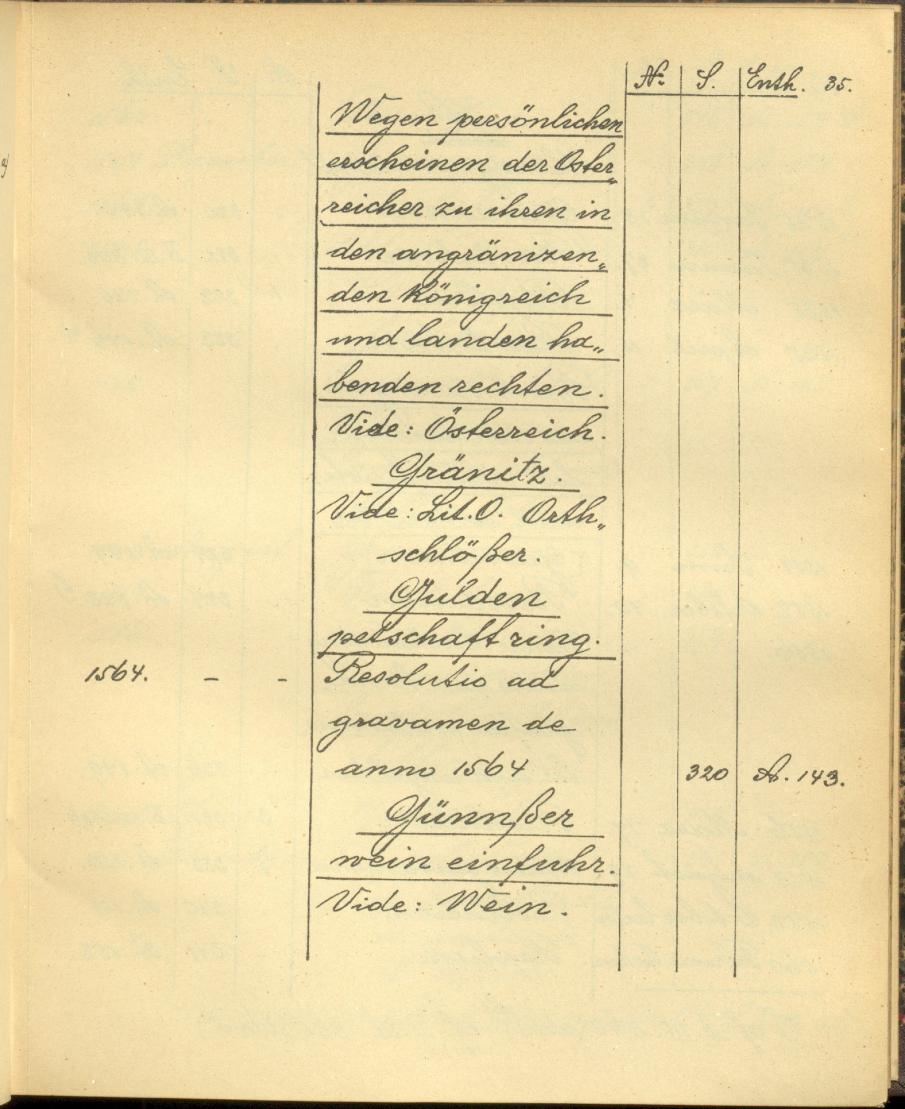 Nº S. Enth. 35.
Wegen persönlichen
erscheinen der Öster„
reicher zu ihren in
den angränizen„
den Königreich
und landen ha„
benden rechten.
Vide: Österreich.
Gränitz.
Vide: Lit. O. Orth„
schlößer.
Gulden
petschaft ring.
1564. - - Resolutio ad
gravamen de
anno 1564 320 A. 143.
Günnßer
wein einfuhr.
Vide: Wein.